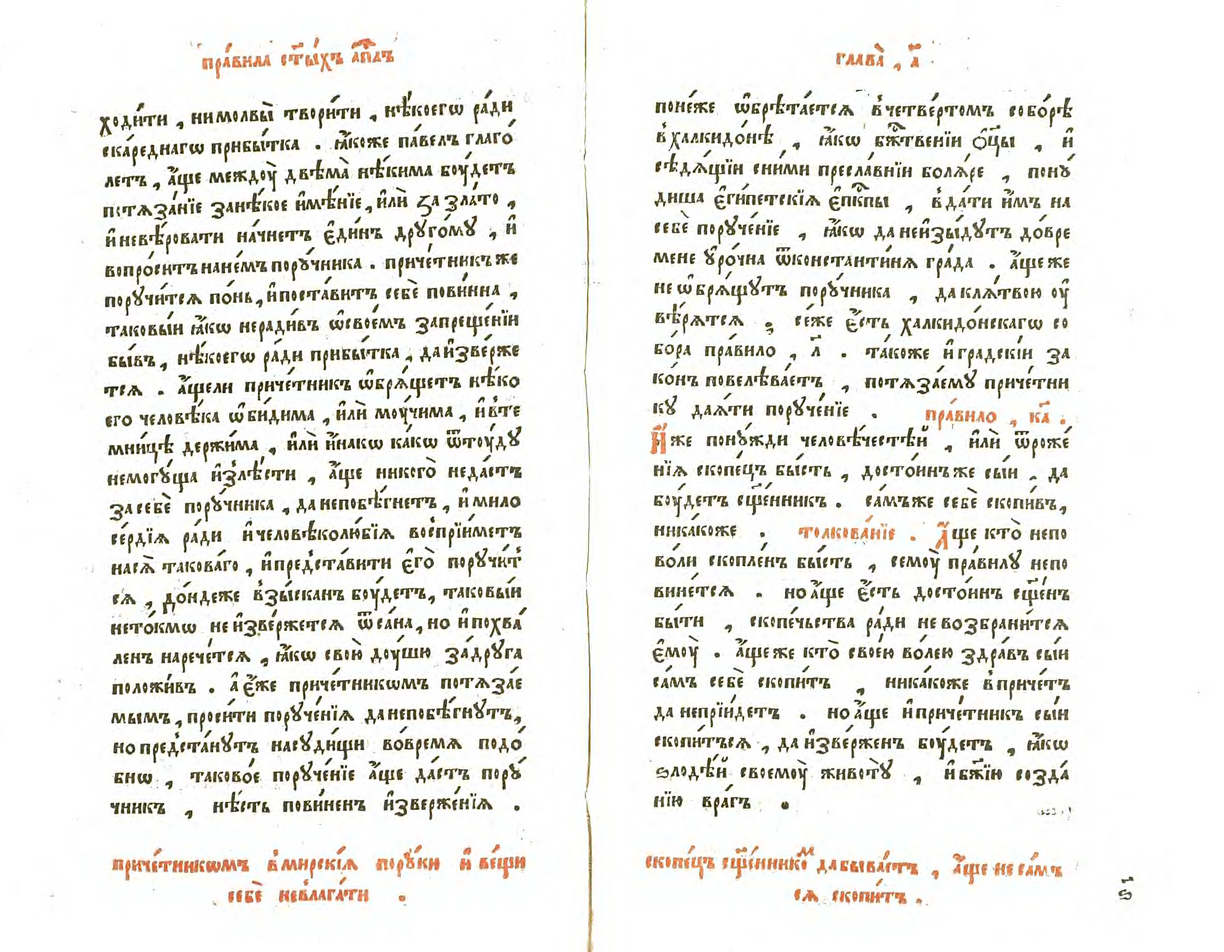 пра́вила ст҃ы́хъ а҆п҃лъ
ходи́ти , нимолвы̀ твори́ти , нѣ́коегѡ ра́ди
ска́реднагѡ прибы́тка . ꙗ҆́коже па́велъ глаго́
летъ , а҆́ще междоу̀ двѣма̀ нѣ́кима боу́детъ
потѧза́нїе занѣ́кое и҆мѣ́нїе , и҆лѝ ꙁа зла́то ,
и҆невѣ́ровати на́чнетъ є҆ди́нъ дрꙋго́мꙋ , и҆
вопро́ситъ нане́мъ порꙋ́чника . приче́тникъ же
порꙋчи́тсѧ по́нь , и҆поста́витъ себѐ пови́нна ,
таковы́и ꙗ҆́кѡ неради́въ ѡ҆свое́мъ запреще́нїи
бы́въ , нѣ́коегѡ ра́ди прибы́тка , даи҆зве́рже
тсѧ . а҆́щели приче́тникъ ѡ҆брѧ́щетъ нѣ́ко
его человѣ́ка ѡ҆би́дима , и҆лѝ моу́чима , и҆вте
мни́цѣ держи́ма , и҆лѝ и҆́накѡ ка́кѡ ѿтоу́дꙋ
немогꙋ́ща и҆злѣ́сти , а҆́ще никого̀ неда́стъ
засебѐ порꙋ́чника , данепобѣ́гнетъ , и҆мило
се́рдїѧ ра́ди и҆человѣколю́бїѧ воспрїи́метъ
насѧ̀ такова́го , и҆предста́вити є҆го̀ порꙋчи́т
сѧ , до́ндеже взы́сканъ боу́детъ , таковы́и
нето́кмѡ неи҆зве́ржетсѧ ѿса́на , но и҆похва́
ленъ нарече́тсѧ , ꙗ҆́кѡ свою̀ доу́шю за́дрꙋга
положи́въ . а҆ є҆́же приче́тникѡмъ потѧза́е
мымъ , проси́ти порꙋче́нїѧ данепобѣ́гнꙋтъ ,
но предста́нꙋтъ насꙋди́щи во́времѧ подо́
бнѡ , таково́е порꙋче́нїе а҆́ще да́стъ порꙋ́
чникъ , нѣ́сть пови́ненъ и҆зверже́нїѧ .
приче́тникѡмъ вмирскі́ѧ порꙋ́ки и҆ ве́щи
себѐ невлага́ти .
глава̀ , а҃
поне́же ѡ҆брѣта́етсѧ вчетве́ртомъ собо́рѣ
вхалкидо́нѣ , ꙗ҆́кѡ бж҃твенїи ѻ҆ц҃ы , и҆
сѣдѧ́щїи сни́ми пресла́внїи болѧ́ре , понꙋ́
диша є҆ги́петскїѧ є҆пкⷭ҇пы , вда́ти и҆̀мъ на
себѐ порꙋче́нїе , ꙗ҆́кѡ данеи҆зы́дꙋтъ до́вре
мене ᲂу҆ро́чна ѿконстанти́нѧ гра́да . а҆́ще же
неѡ҆брѧ́щꙋтъ порꙋ́чника , даклѧ́твою ᲂу҆
вѣ́рѧтсѧ ; се́же є҆́сть халкидо́нскагѡ со
бо́ра пра́вило , л҃ . та́коже и҆градскі́и за
ко́нъ повелѣва́етъ , потѧза́емꙋ приче́тни
кꙋ даѧ́ти порꙋче́нїе . пра́вило , ка҃ .
И҆́же понꙋ́жди человѣ́честѣй , и҆лѝ ѿроже́
нїѧ скопе́цъ бы́сть , досто́инъ же сы́и , да
боу́детъ сщ҃е́нникъ . са́мъ же себѐ скопи́въ ,
ника́коже . толкова́нїе . А҆́ще кто̀ непо
во́ли скопле́нъ бы́сть , семоу̀ пра́вилꙋ непо
вине́тсѧ . но а҆́ще є҆́сть досто́инъ сщ҃е́нъ
бы́ти , скопе́чьства ра́ди невозбрани́тсѧ
є҆моу̀ . а҆́ще же кто̀ свое́ю во́лею здра́въ сы́и
са́мъ себѐ скопи́тъ , ника́коже впри́четъ
да непрїи́детъ . но а҆́ще и҆приче́тникъ сы́и
скопи́тъсѧ , да и҆зве́рженъ боу́детъ , ꙗ҆́кѡ
ѕлодѣ́й своемоу̀ животꙋ̀ , и҆бж҃їю созда́
нїю вра́гъ .
скопе́цъ сщ҃е́ннико́м дабыва́етъ , а҆́ще не са́мъ
сѧ скопи́тъ .